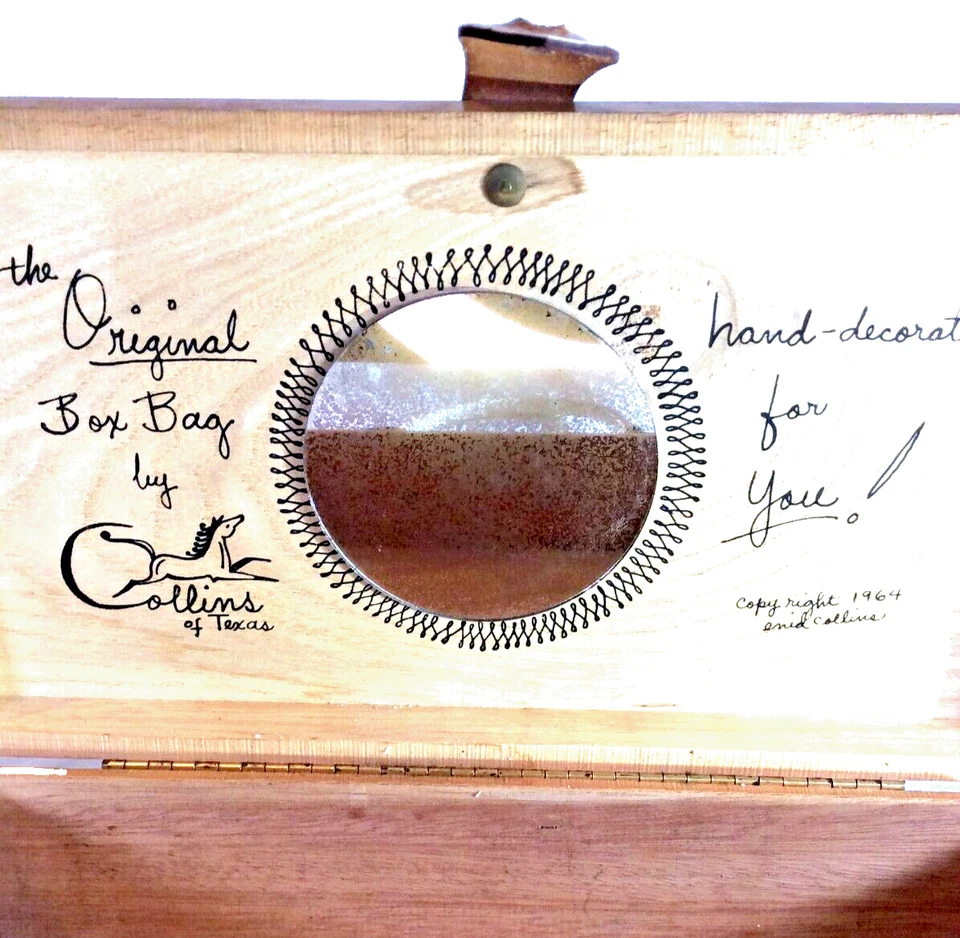 the
Original
Box Bag
by
Collins
of Texas
hand-decorat
for
You!
copy right 1964
enid collins